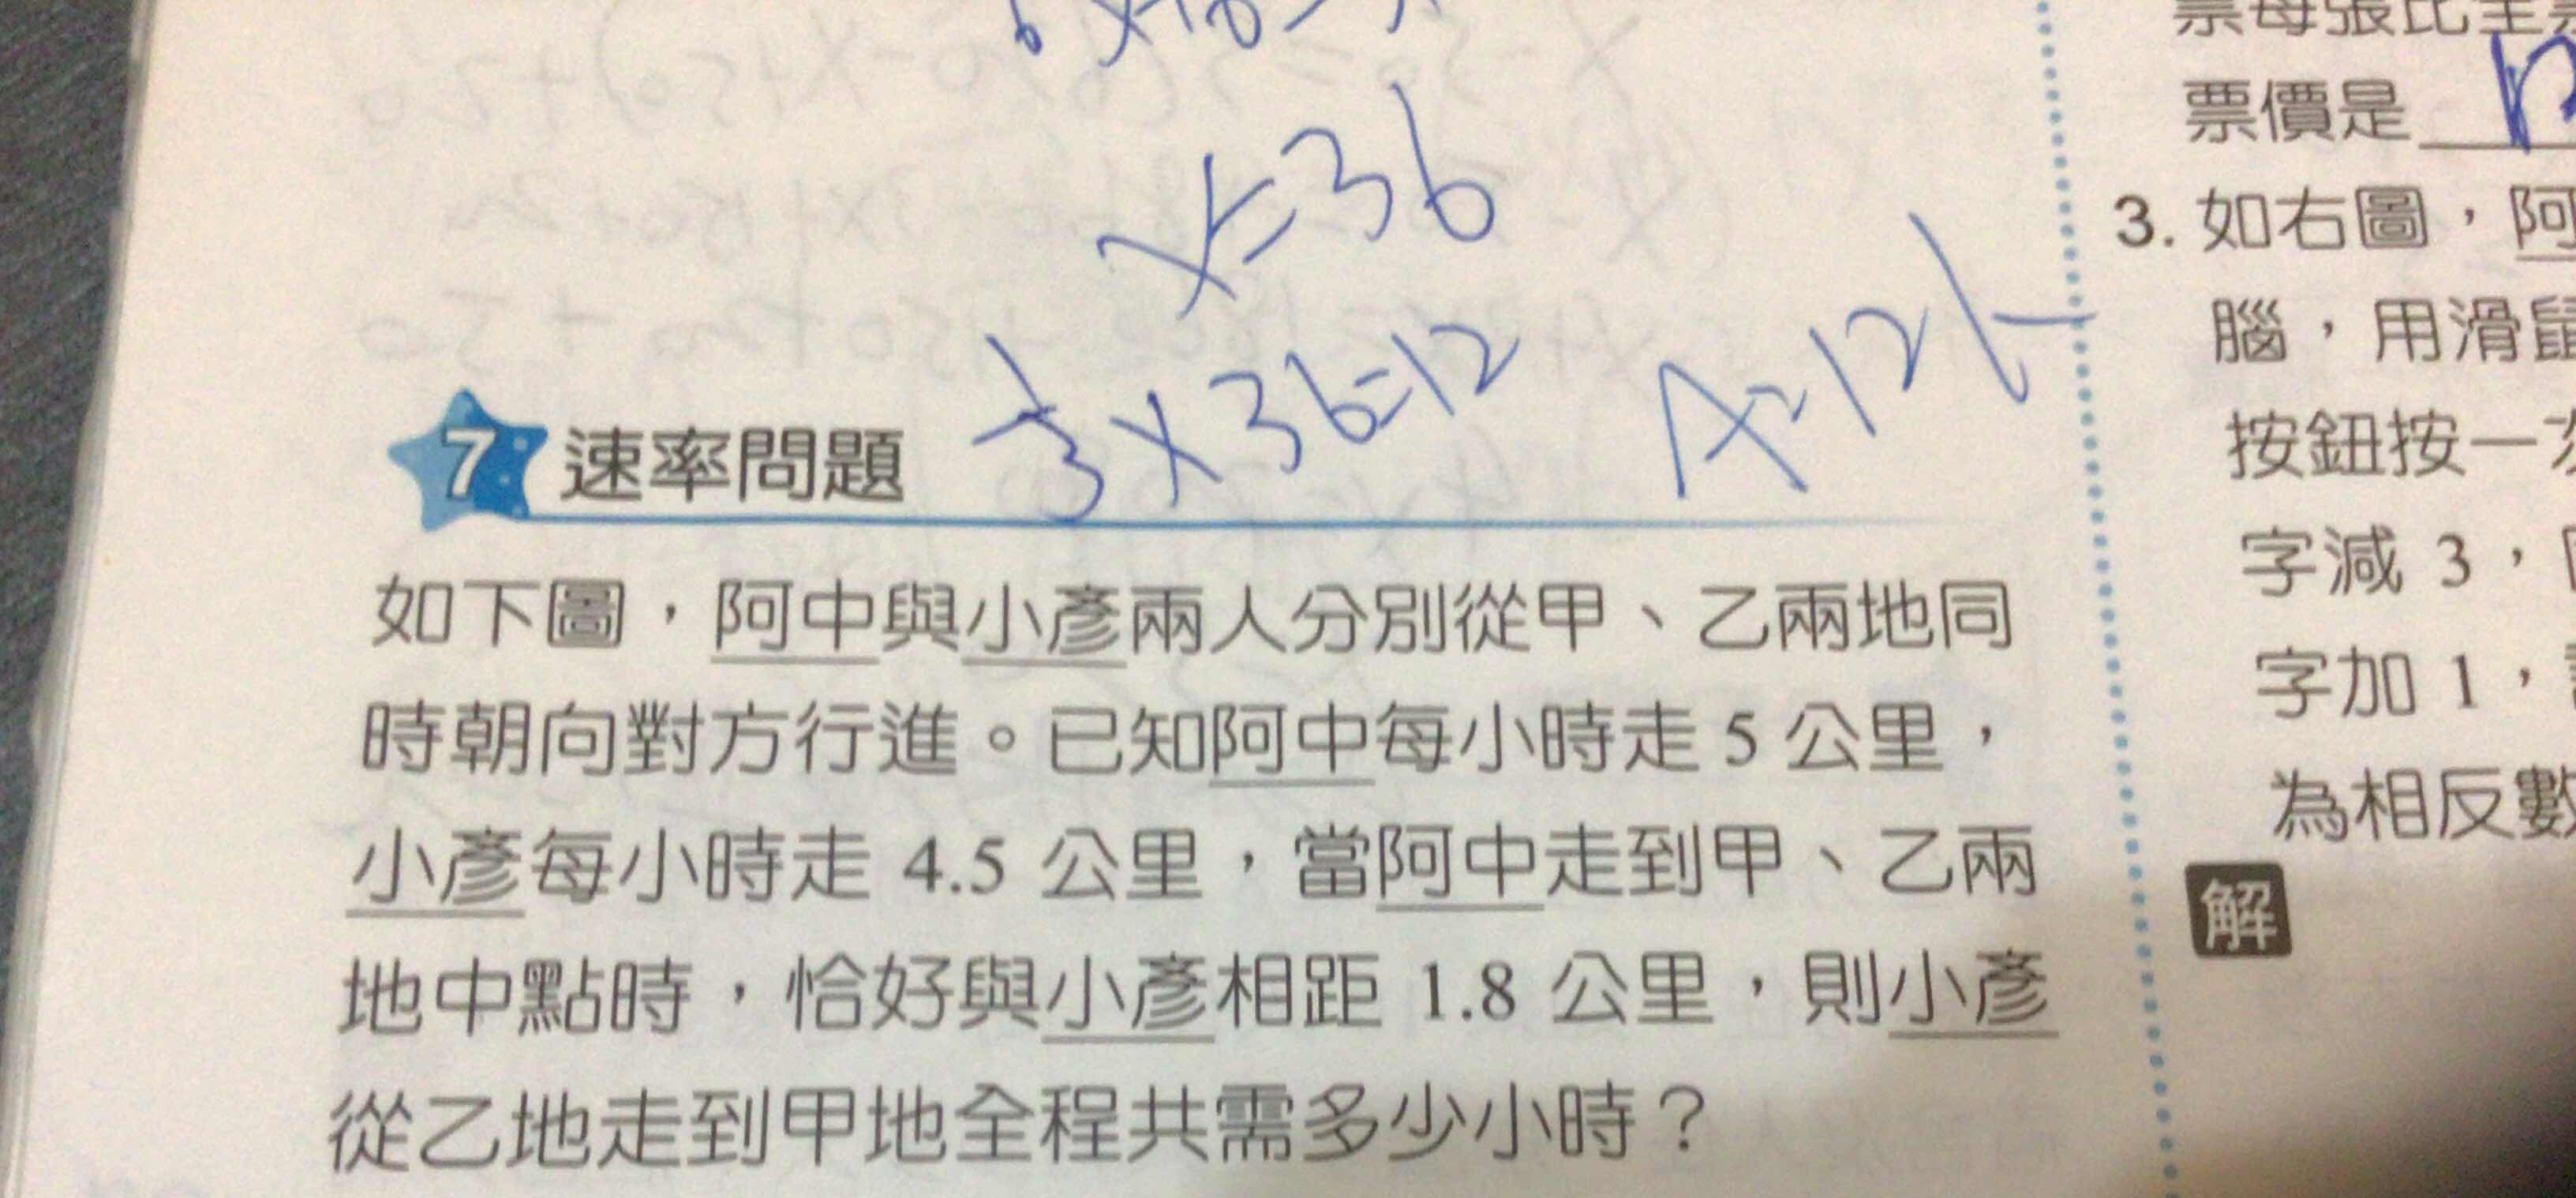 x=36
1/3 x 36=12
7 速率問題
如下圖，阿中與小彥兩人分別從甲、乙兩地同
時朝向對方行進。已知阿中每小時走 5 公里，
小彥每小時走 4.5 公里，當阿中走到甲、乙兩
地中點時，恰好與小彥相距 1.8 公里，則小彥
從乙地走到甲地全程共需多少小時？
票每張比全
票價是
3. 如右圖，阿
腦，用滑鼠
按鈕按一次
字減 3，
字加 1，
為相反數
解